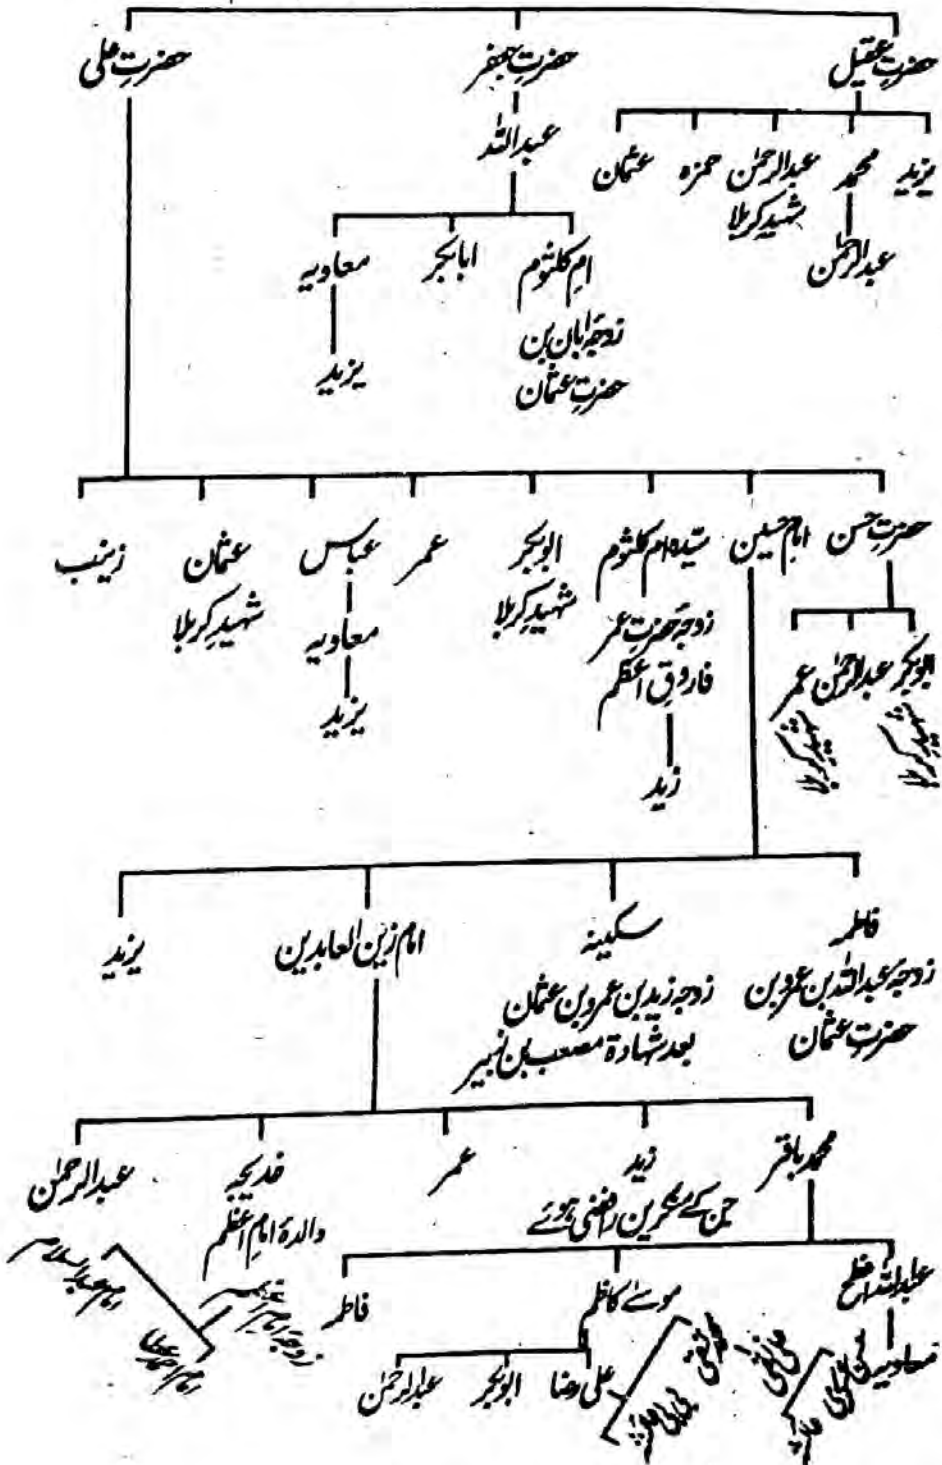 حضرتِ عقیل
حضرتِ جعفر
حضرتِ علی
یزید
محمد
عبدالرحمٰن
شہیدِ کربلا
حمزہ
عثمان
عبدالرحمٰن
عبداللہ
امِ کلثوم
زوجہ ابان بن
حضرتِ عثمان
ابابکر
معاویہ
یزید
حضرتِ حسن
امام حسین
سیّدہ ام کلثوم
زوجہ حضرتِ عمر
فاروقِ اعظم
زید
ابوبکر
شہیدِ کربلا
عمر
عباس
معاویہ
یزید
عثمان
شہیدِ کربلا
زینب
ابوبکر
شہیدِ کربلا
عبدالرحمٰن
عمر
شہیدِ کربلا
فاطمہ
زوجہ عبداللہ بن عمرو بن
حضرتِ عثمان
سکینہ
زوجہ زید بن عمرو بن عثمان
بعد شہادۃ مصعب بن زبیر
امام زین العابدین
یزید
محمد باقر
زید
جن کے منکرین رافضی ہوئے
عمر
خدیجہ
والدۂ امام اعظم
عبدالرحمٰن
عبداللہ افطح
معاویہ
موسےٰ کاظم
فاطمہ
علی رضا
ابوبکر
عبدالرحمٰن
محمد تقی
علی نقی
حسن عسکری